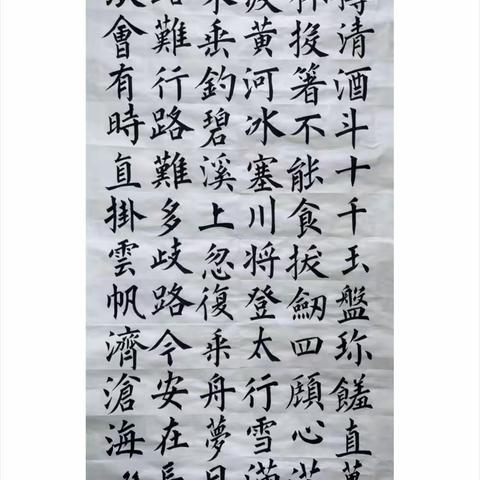 樽清酒斗十千玉盤珍饈直萬
杯投箸不能食拔劒四顧心茫
渡黄河冰塞川將登太行雪滿
來垂釣碧溪上忽復乘舟夢日
路難行路難多歧路今安在長
浪會有時直掛雲帆濟滄海